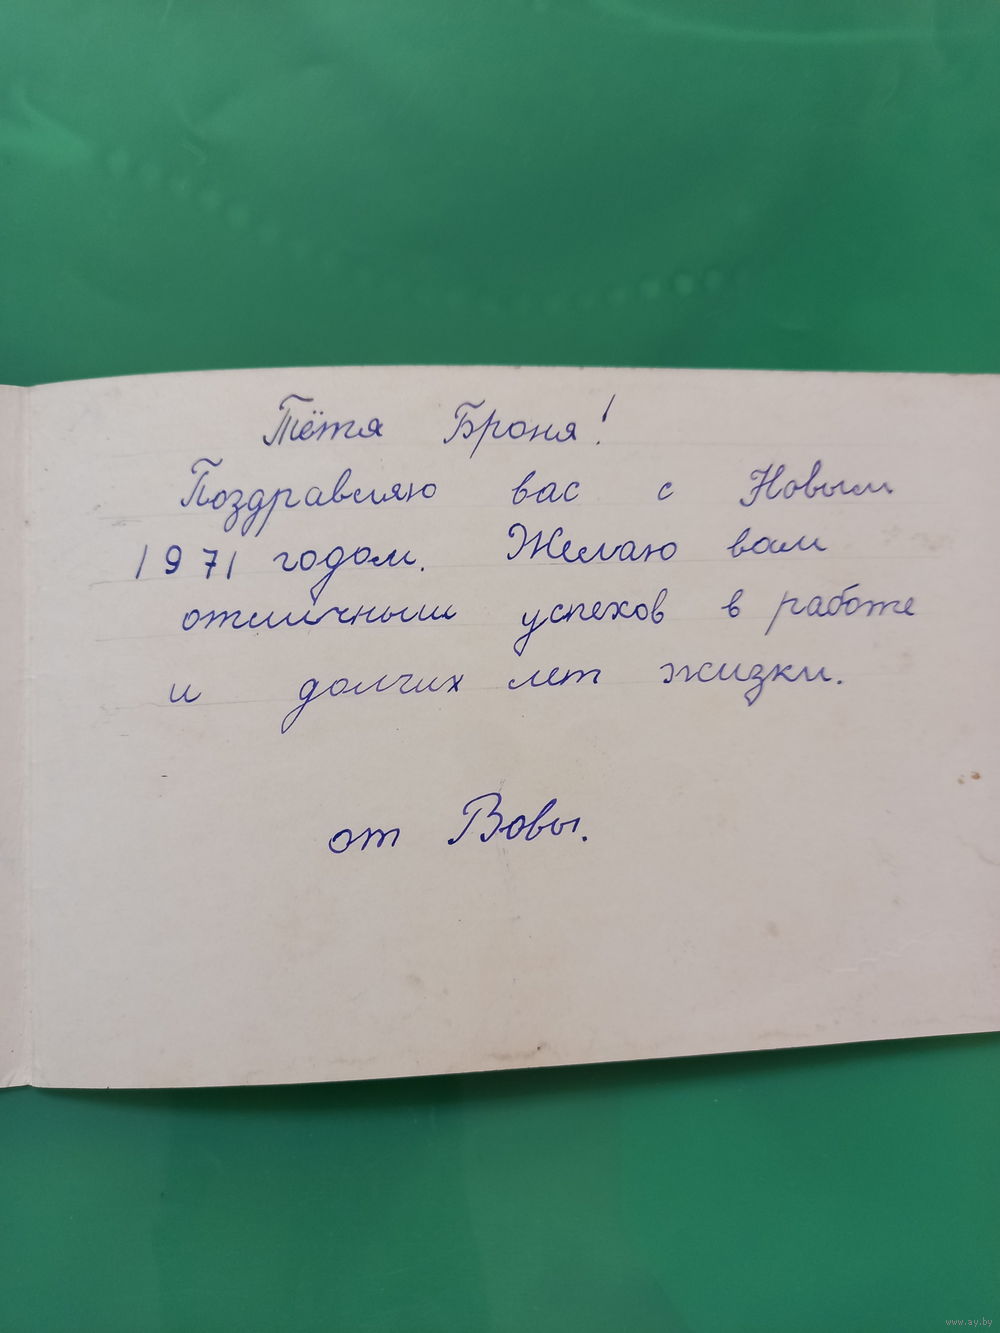 Тётя Броня!
Поздравляю вас с Новым
1971 годом. Желаю вам
отличным успехов в работе
и долгих лет жизки.
от Вовы.
www.ay.by